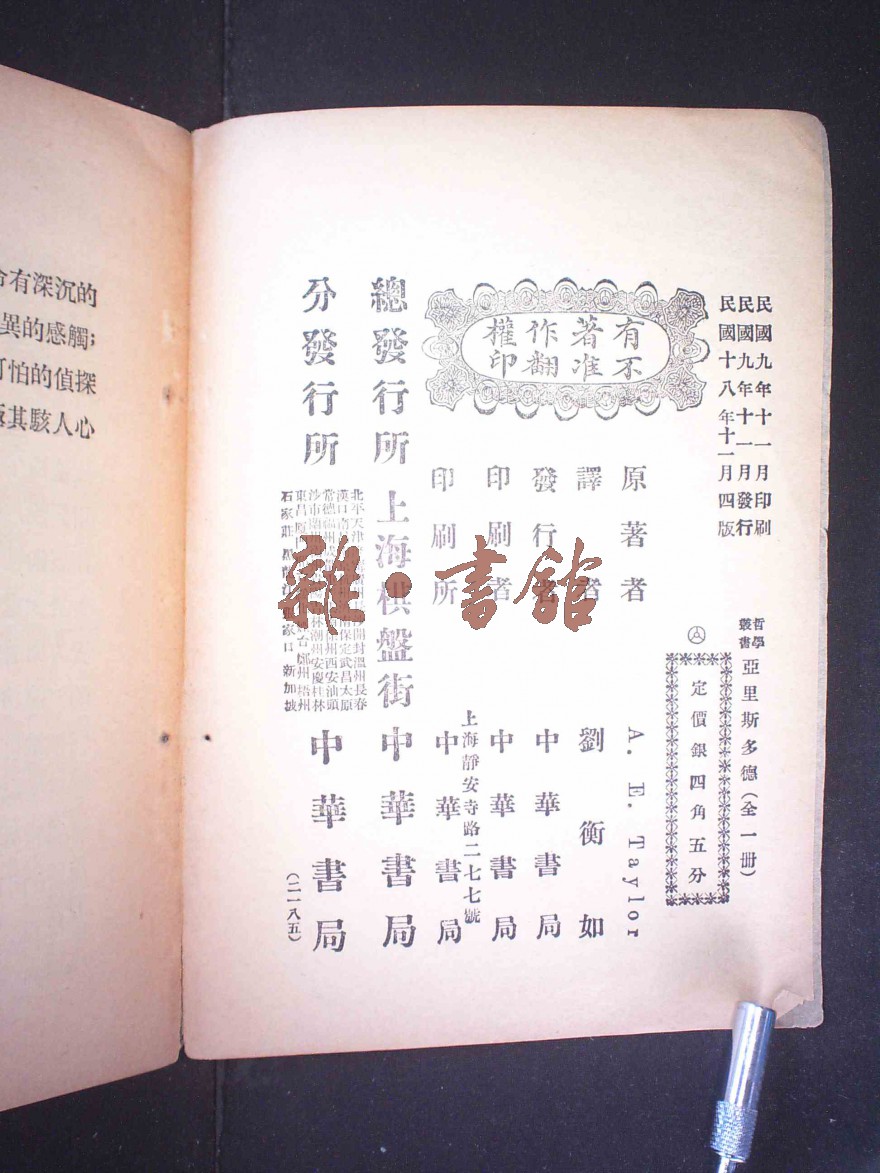 民國九年十一月印刷
民國九年十一月發行
民國十八年十一月四版
哲學
叢書
亞里斯多德(全一冊)
定價銀四角五分
有不
著准
作翻
權印
原著者 A. E. Taylor
譯者 劉衡如
發行者 中華書局
印刷者 中華書局
上海靜安寺路二七七號
印刷所 中華書局
總發行所 上海棋盤街 中華書局
分發行所
北平天津 開封溫州長春
漢口南 保定武昌太原
常德 州西安汕頭
沙市 林潮州安慶桂林
東昌 台鄭州梧州
石家莊 家口 新加坡
中華書局
(二一八五)
有深沉的
異的感觸;
可怕的偵探
其駭人心
雜·書館